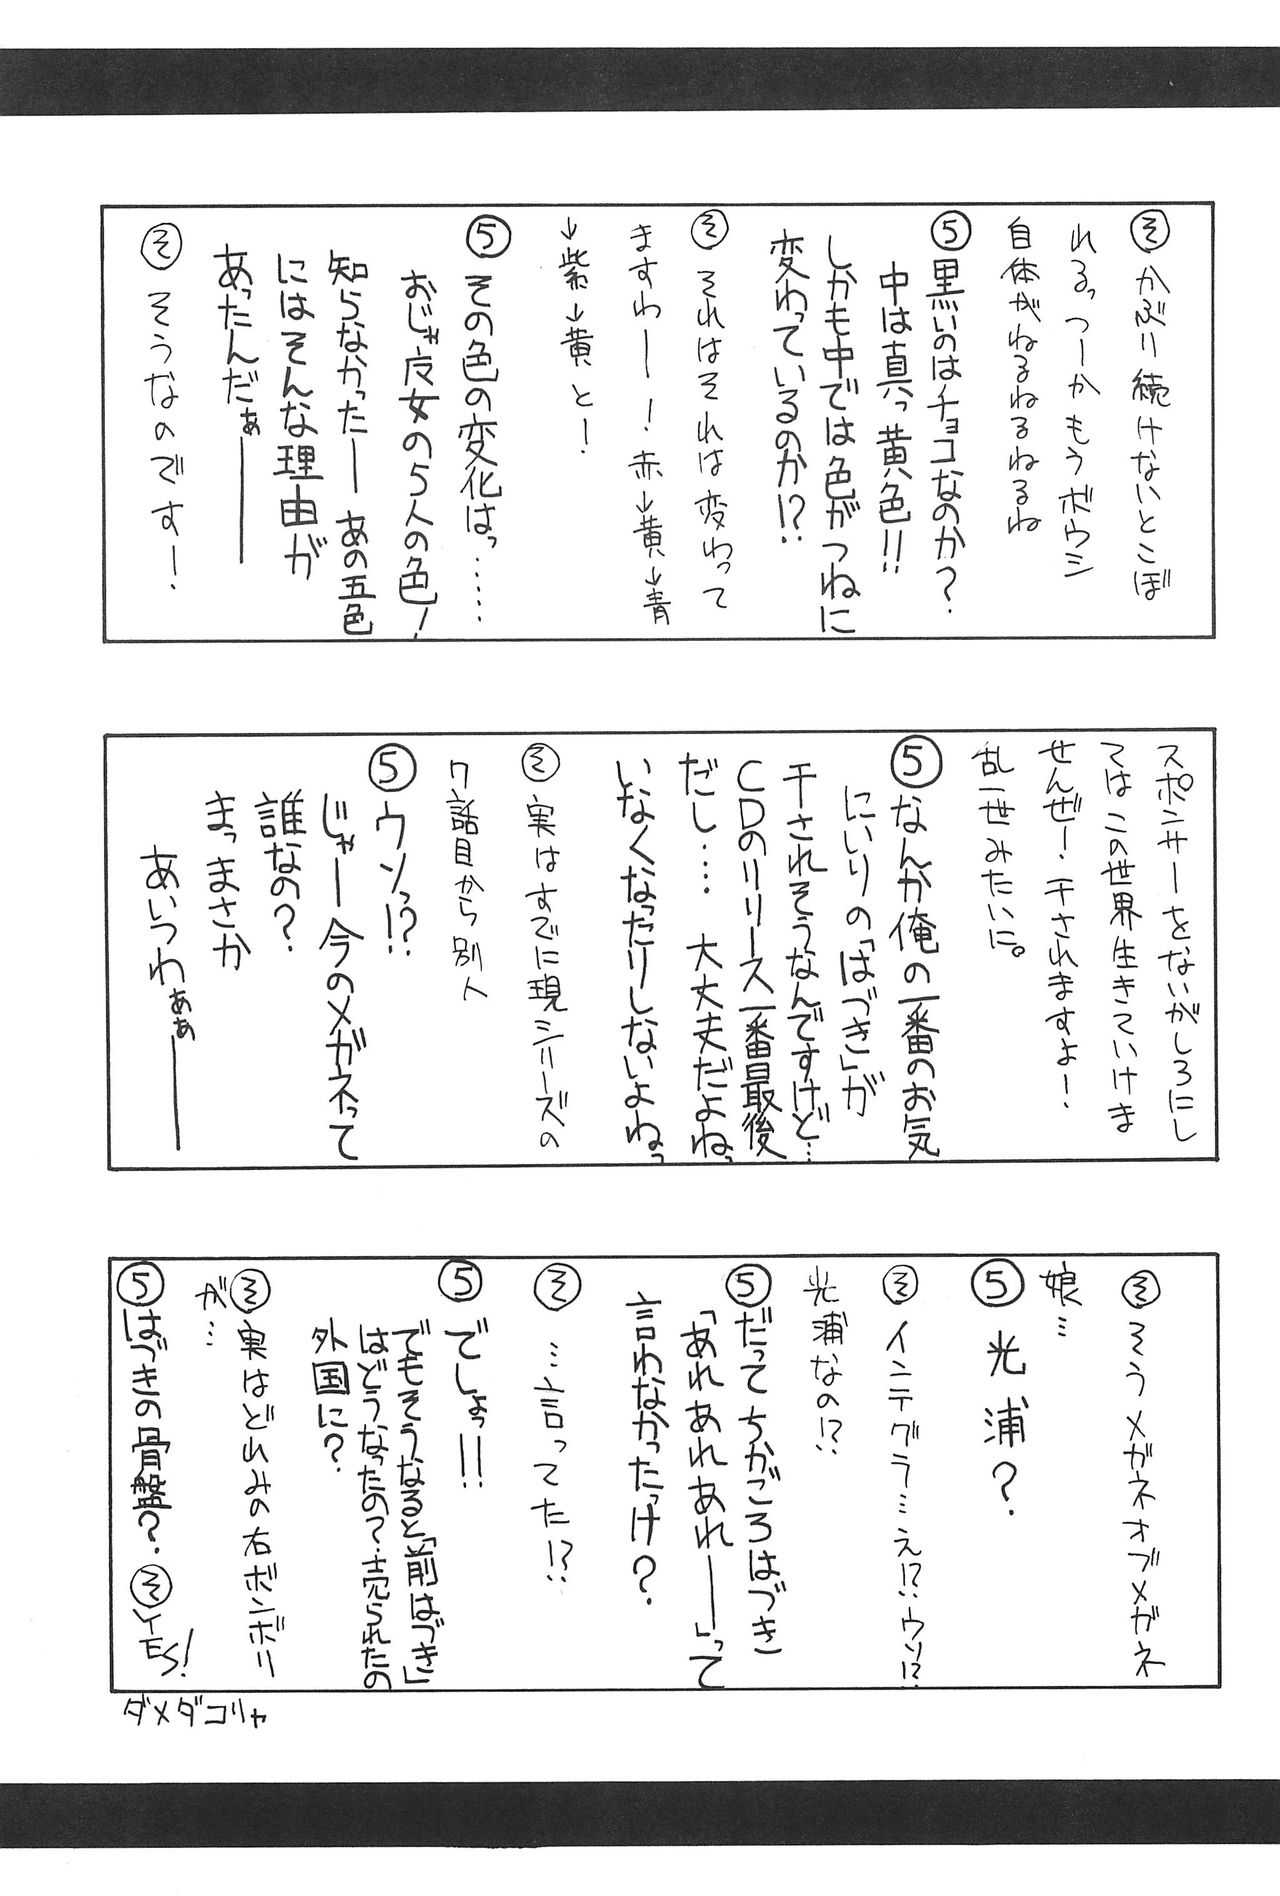 そ かぶり続けないとこぼ
れるっつーかもうボウシ
自体がねるねるねるね
5 黒いのはチョコなのか?
中は真っ黄色!!
しかも中では色がつねに
変わっているのか!?
そ それはそれは変わって
ますわー! 赤→黄→青
→紫→黄と!
5 その色の変化はっ……
おジャ女の5人の色!
知らなかったー あの五色
にはそんな理由が
あったんだぁーー
そ そうなのです!
スポンサーをないがしろにし
てはこの世界生きていけま
せんぜー・干されますよー!
乱一世みたいに。
5 なんか俺の一番のお気
にいりの「はづき」が
干されそうなんですけど…
CDのリリース一番最後
だし… 大丈夫だよねっ
いなくなったりしないよねっ
そ 実はすでに現シリーズの
7話目から別人
5 ウソっ!?
じゃー今のメガネって
誰なの?
まっまさか
あいつわぁぁーー
そ そうメガネオブメガネ
娘…
5 光浦?
そ インテグラ…え!?ウソ!?
光浦なの!?
5 だってちかごろはづき
「あれあれあれあれー」って
言わなかったっけ?
そ …言ってた!?
5 でしょっ!!
でもそうなると「前はづき」
はどうなったの?売られたの
外国に?
そ 実はどれみの右ボンボリ
が…
5 はづきの骨盤? そ YES!
ダメダコリャ